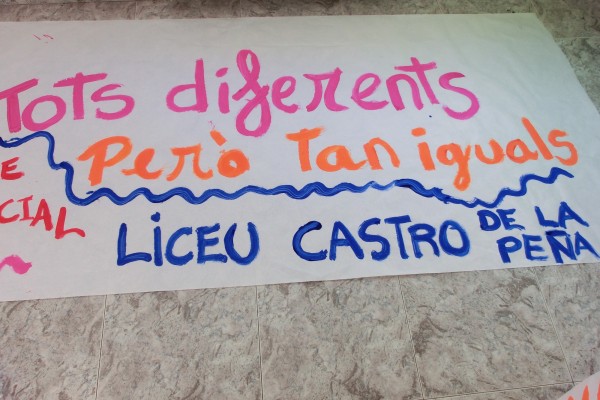 Tots diferents
Però Tan iguals
E
CIAL
LICEU CASTRO DE LA PEÑA